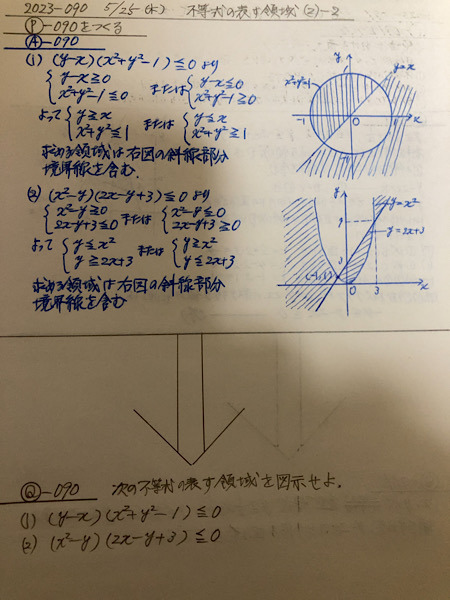 2023-090 5/25(木) 不等式の表す領域(2)-2
Ⓟ-090をつくる
Ⓐ-090
(1) (y-x)(x²+y²-1)≦0 より
{y-x≧0 x²+y²-1≦0 または {y-x≦0 x²+y²-1≧0
よって {y≧x x²+y²≦1 または {y≦x x²+y²≧1
求める領域は右図の斜線部分
境界線を含む.
y
x²+y²=1
y=x
1
-1 O 1 x
-1
(2) (x²-y)(2x-y+3)≦0 より
{x²-y≧0 2x-y+3≦0 または {x²-y≦0 2x-y+3≧0
よって {y≦x² y≧2x+3 または {y≧x² y≦2x+3
求める領域は右図の斜線部分
境界線を含む
y
y=x²
9
y=2x+3
(-1,1)
O 3 x
Ⓠ-090 次の不等式の表す領域を図示せよ.
(1) (y-x)(x²+y²-1)≦0
(2) (x²-y)(2x-y+3)≦0